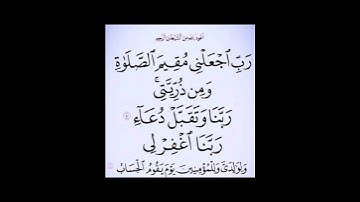 أعوذ بالله من الشيطان الرجيم
رَبِّ ٱجْعَلْنِي مُقِيمَ ٱلصَّلَوٰةِ
وَمِن ذُرِّيَّتِي ۚ
رَبَّنَا وَتَقَبَّلْ دُعَآءِ
رَبَّنَا ٱغْفِرْ لِي
وَلِوَٰلِدَيَّ وَلِلْمُؤْمِنِينَ يَوْمَ يَقُومُ ٱلْحِسَابُ